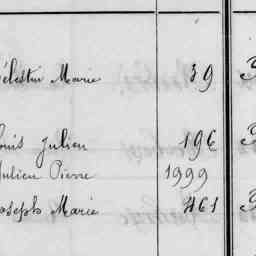 élestin Marie 39 3
ouis Julien 196 3
ulien Pierre 1999
oseph Marie 461 3